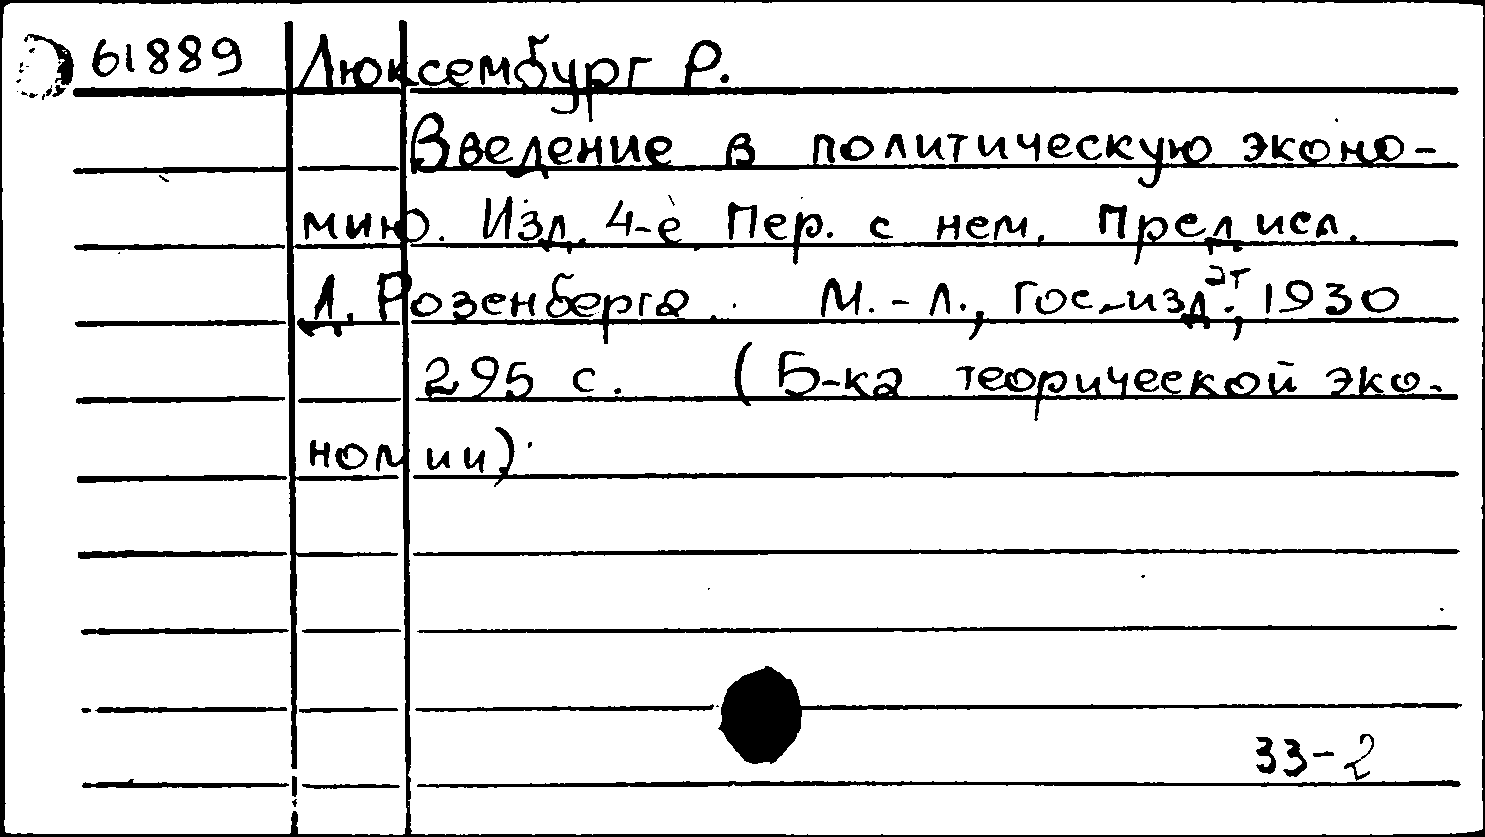 61889 Люксембург Р.
Введение в политическую эконо-
мию. Изд. 4-е Пер. с нем. Предисл.
Д. Розенберга. М.-Л., Гос-издат, 1930
295 с. (Б-ка теорической эко-
номии).
33-2